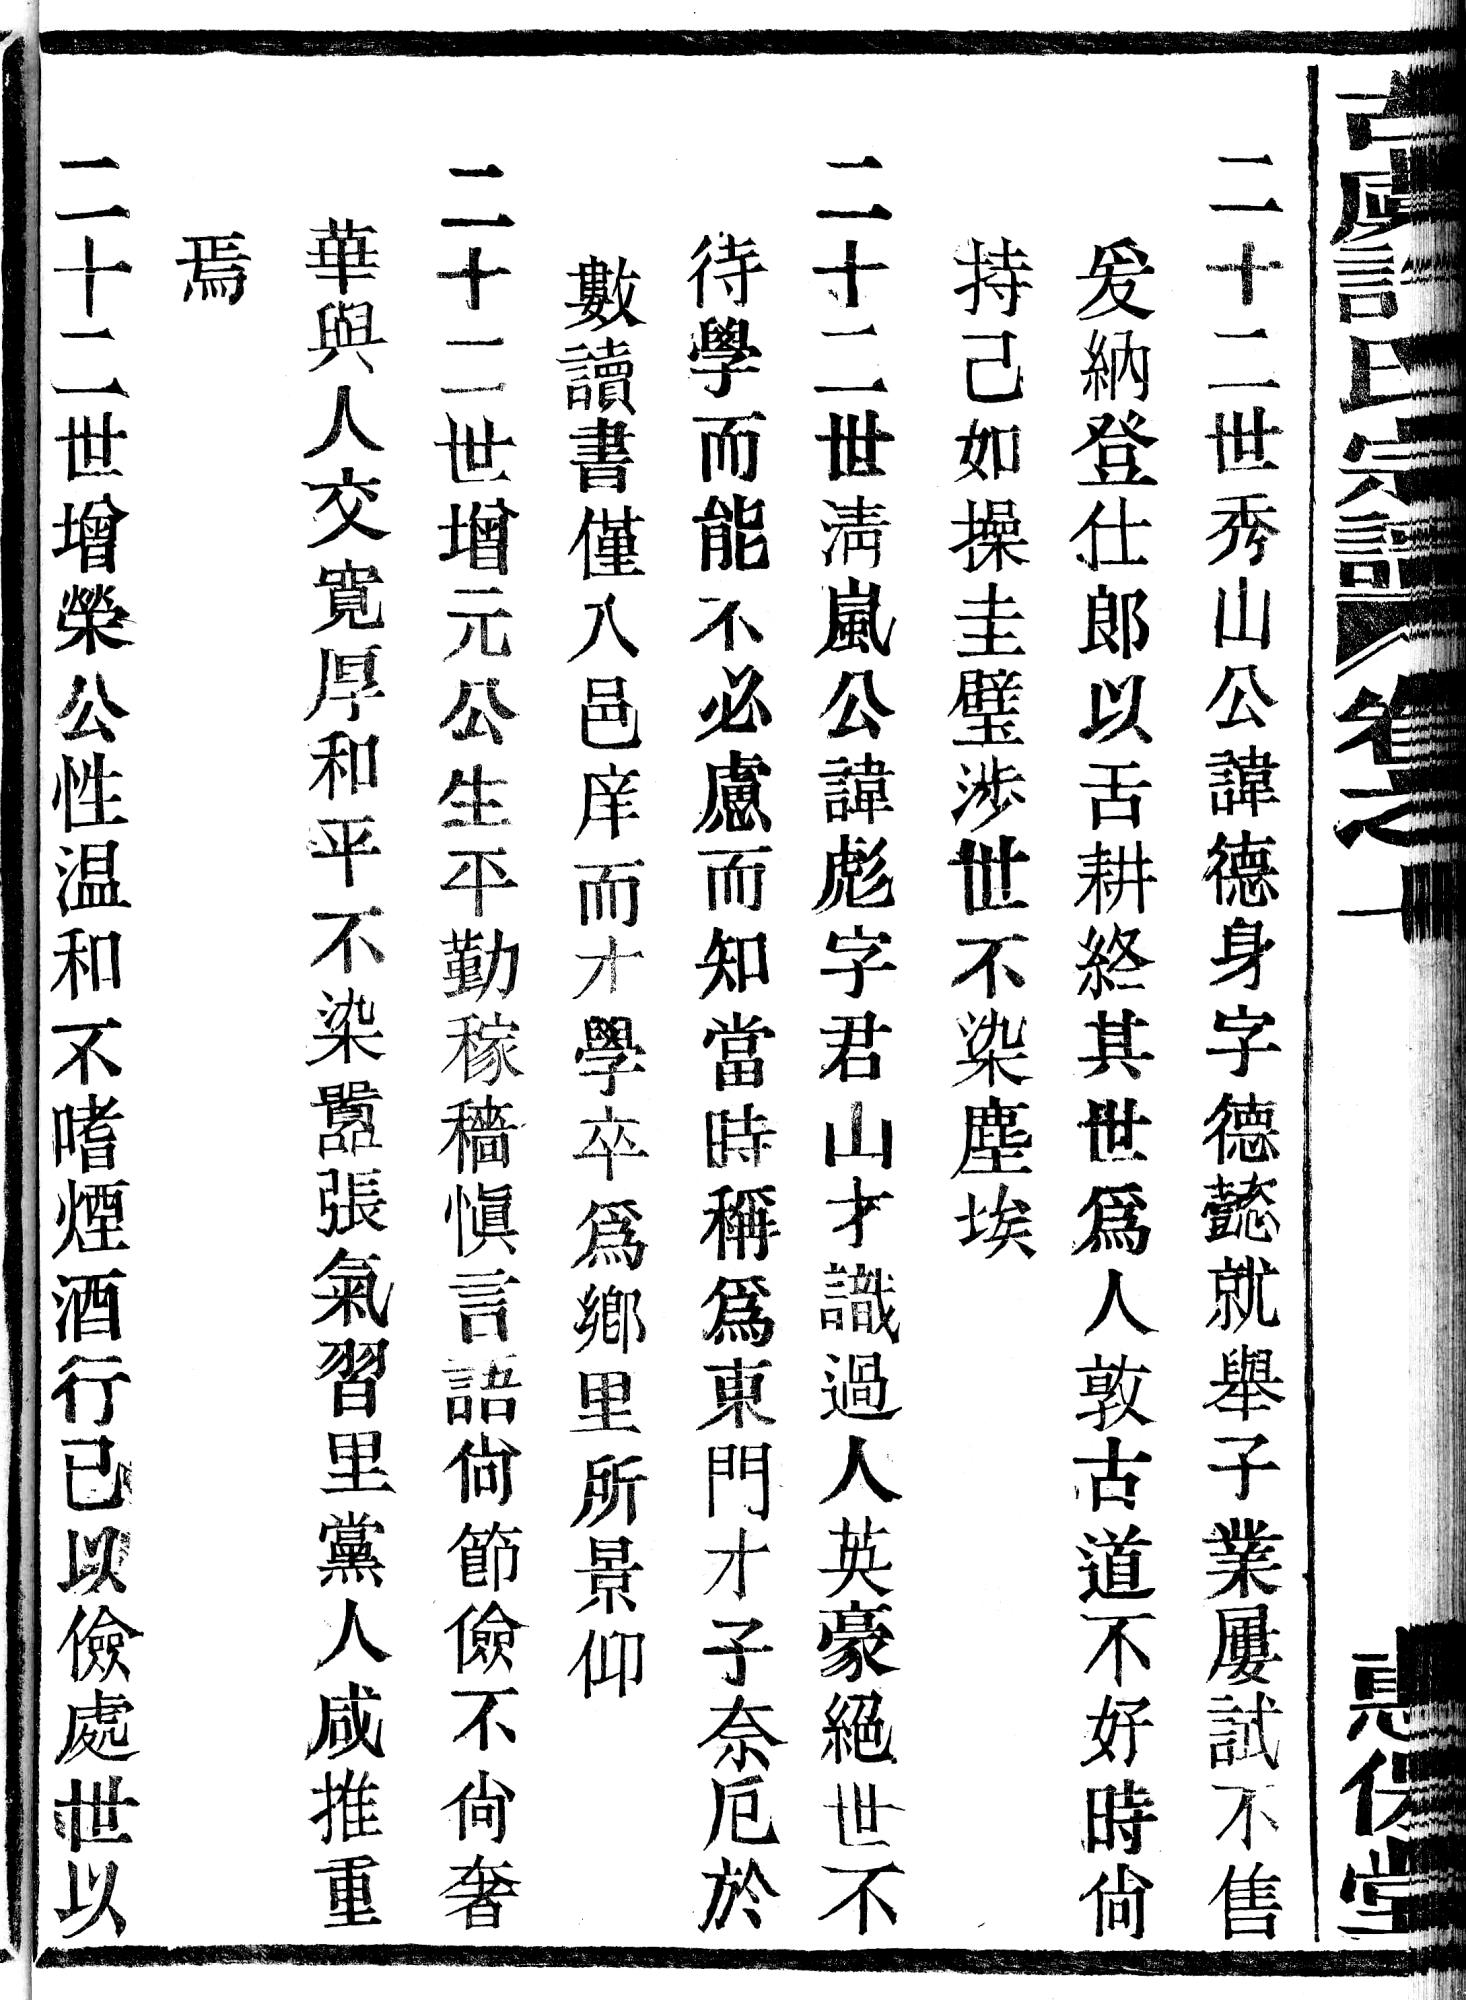 古虞許氏宗譜 卷之一
惠保堂
二十二世秀山公諱德身字德懿就舉子業屢試不售
爰納登仕郎以舌耕終其世爲人敦古道不好時尙
持己如操圭璧涉世不染塵埃
二十二世淸嵐公諱彪字君山才識過人英豪絕世不
待學而能不必慮而知當時稱爲東門才子奈厄於
數讀書僅入邑庠而才學卒爲鄉里所景仰
二十二世增元公生平勤稼穡愼言語尙節儉不尙奢
華與人交寬厚和平不染囂張氣習里黨人咸推重
焉
二十二世增榮公性温和不嗜煙酒行已以儉處世以